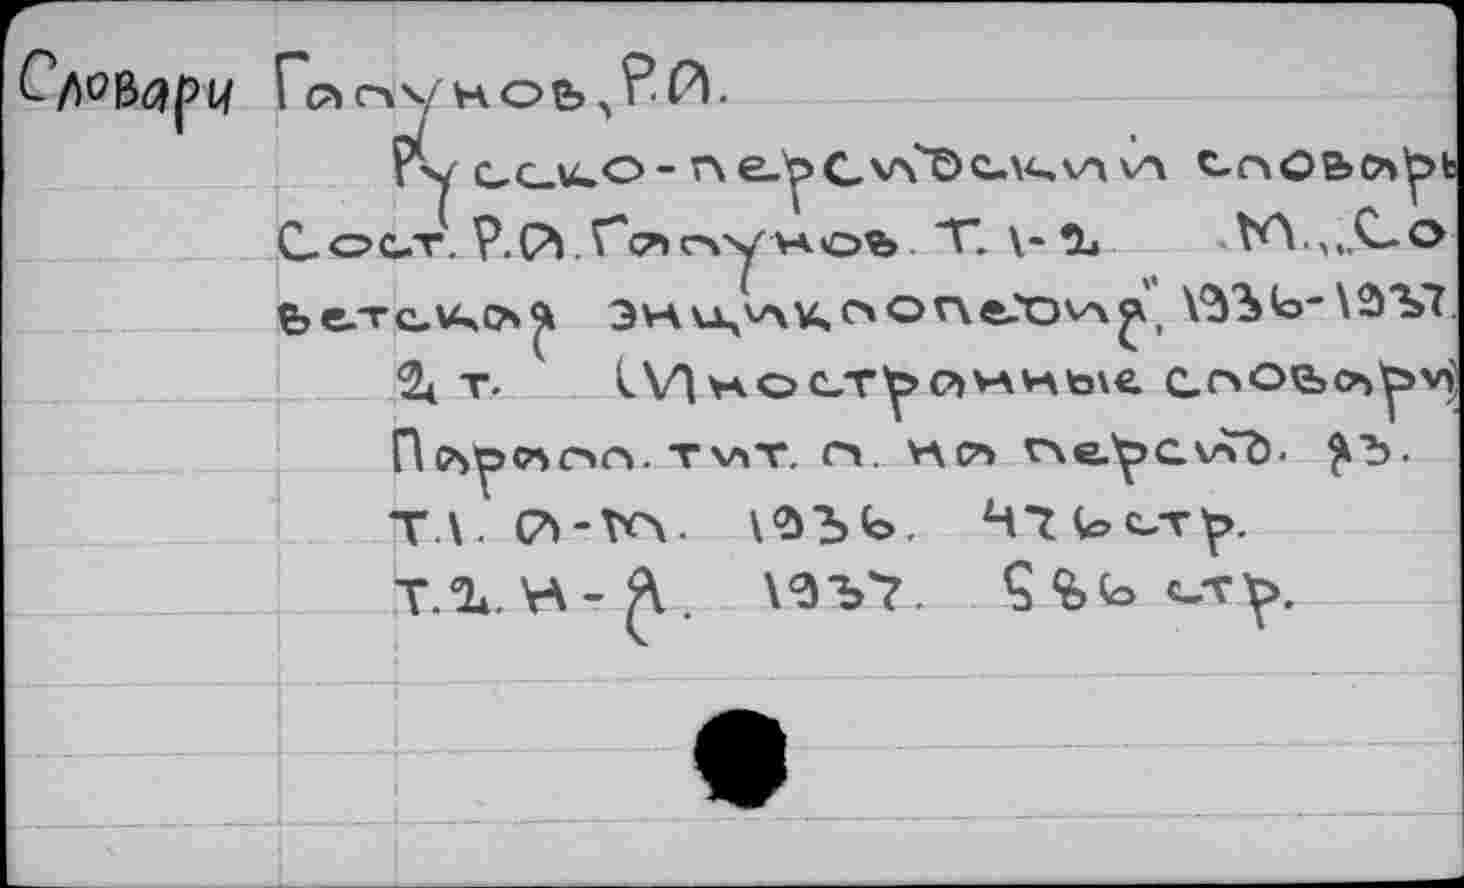 Словари Галунов, Р.А.
Русско-персидский словарь
Сост. Р.А. Галунов. Т. 1-2 М., „Со
ветская энциклопедия", 1936-1937.
2 т. (Иностранные словари)
Паралл. тит. л. на персид. яз.
Т.1. А-М. 1936. 476 стр.
Т.2. Н-Я. 1937. 586 стр.